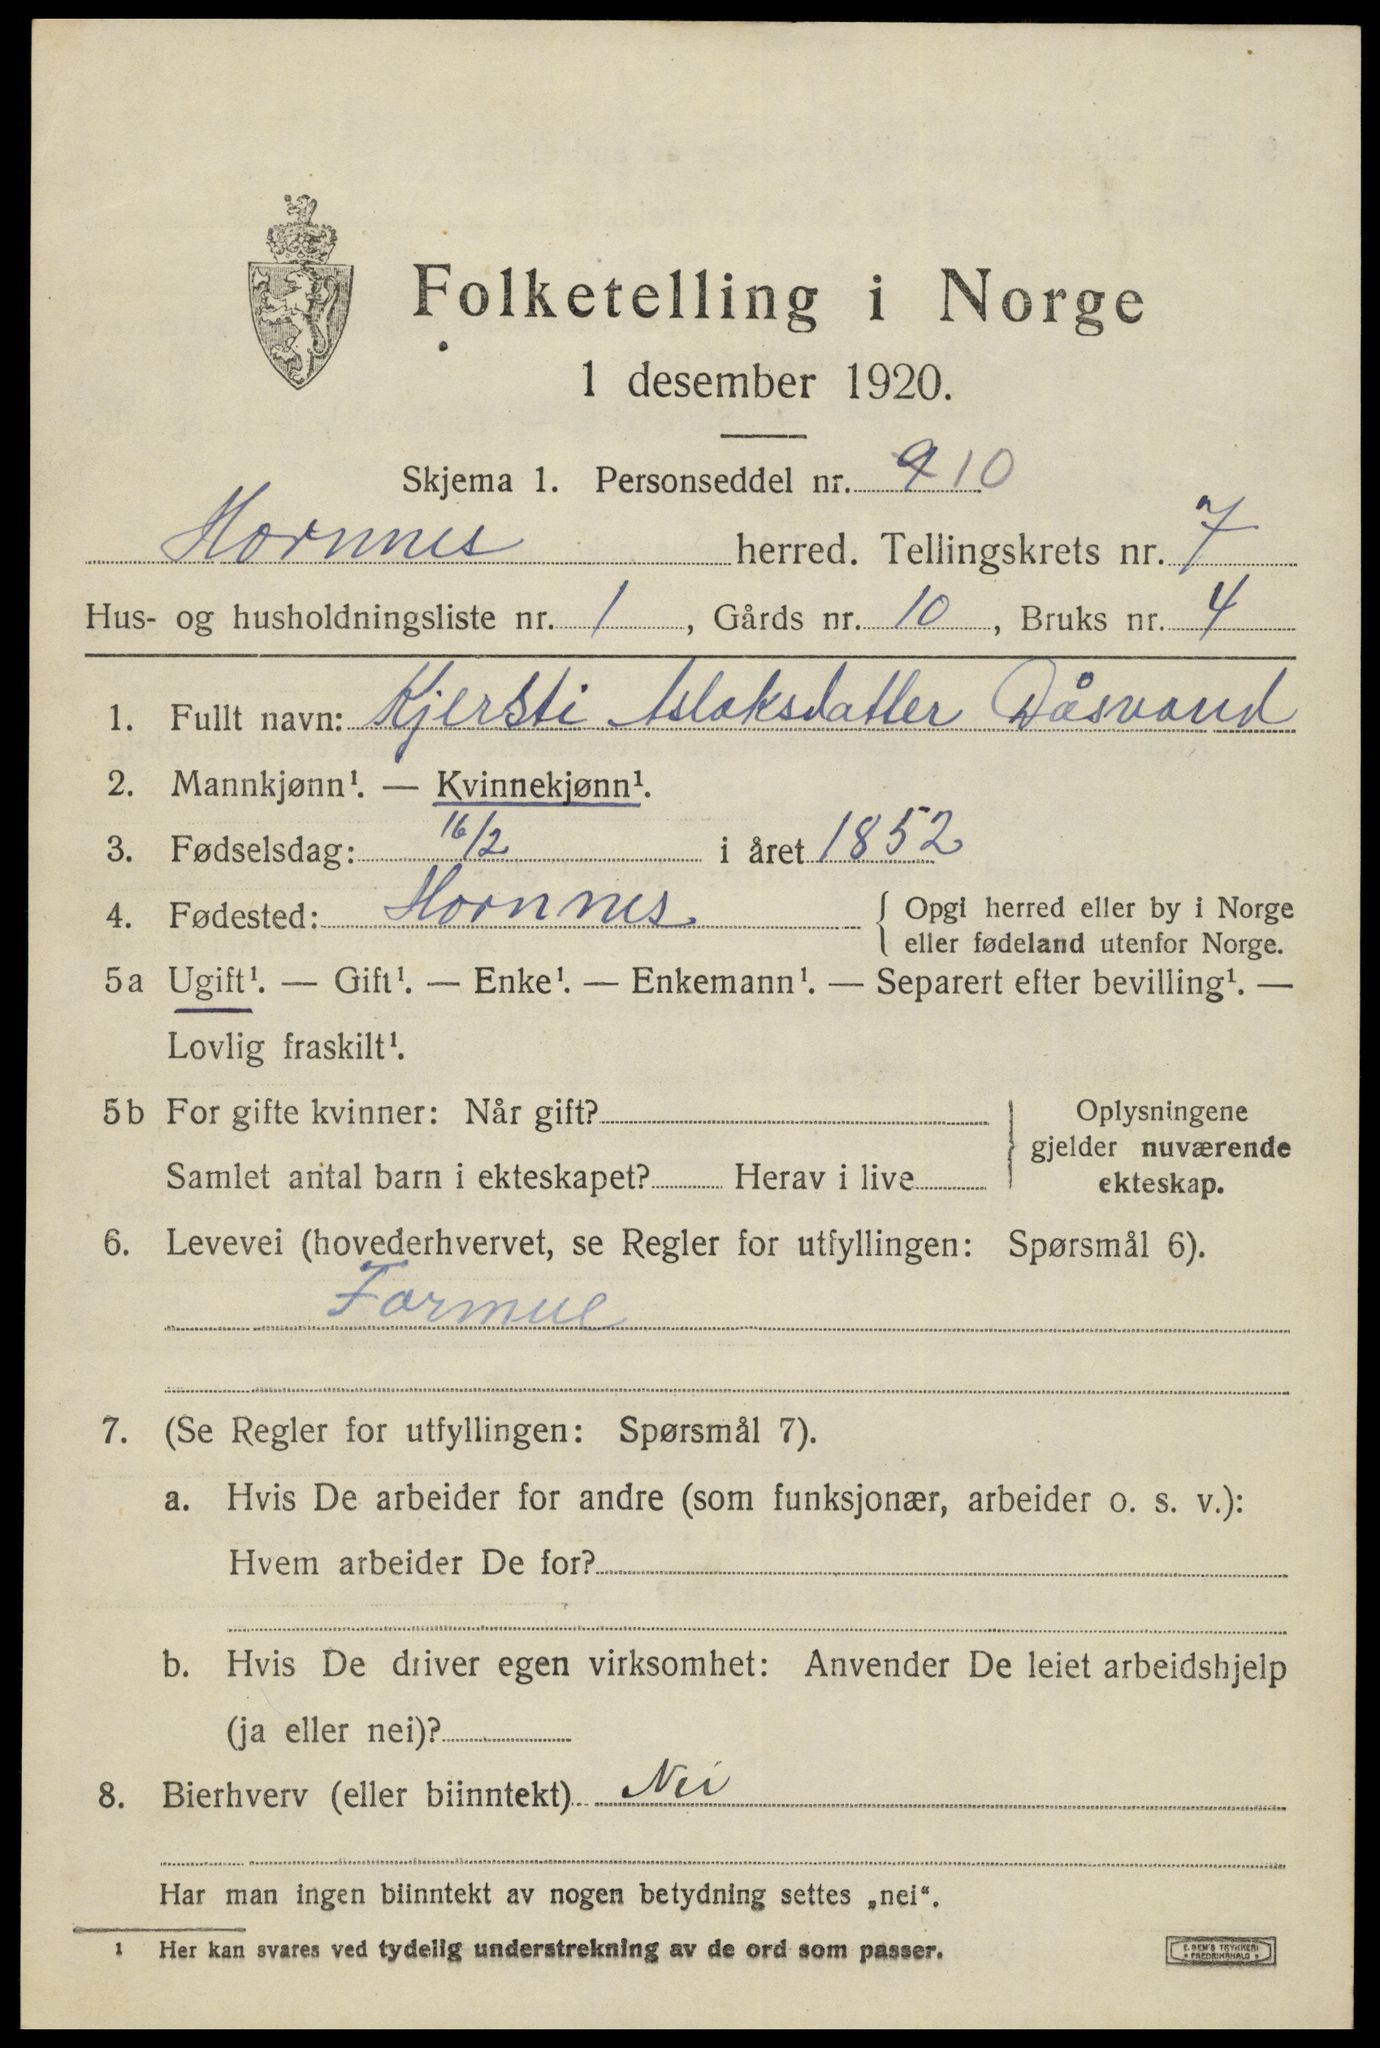 Folketelling i Norge
1 desember 1920.
Skjema 1. Personseddel nr. 9 10
Hornnes herred. Tellingskrets nr. 7
Hus- og husholdningsliste nr. 1, Gårds nr. 10, Bruks nr. 4
1. Fullt navn: Kjersti Aslaksdatter Dåsvand
2. Mannkjønn¹. — Kvinnekjønn¹.
3. Fødselsdag: 16/2 i året 1852
4. Fødested: Hornnes { Opgi herred eller by i Norge
eller fødeland utenfor Norge.
5a Ugift¹. — Gift¹. — Enke¹. — Enkemann¹. — Separert efter bevilling¹. —
Lovlig fraskilt¹.
5b For gifte kvinner: Når gift? Oplysningene
gjelder nuværende
Samlet antal barn i ekteskapet? Herav i live ekteskap.
6. Levevei (hovederhvervet, se Regler for utfyllingen: Spørsmål 6).
Formue
7. (Se Regler for utfyllingen: Spørsmål 7).
a. Hvis De arbeider for andre (som funksjonær, arbeider o. s. v.):
Hvem arbeider De for?
b. Hvis De driver egen virksomhet: Anvender De leiet arbeidshjelp
(ja eller nei)?
8. Bierhverv (eller biinntekt) Nei
Har man ingen biinntekt av nogen betydning settes „nei“.
1 Her kan svares ved tydelig understrekning av de ord som passer.
E. SEM'S TRYKKERI
FREDRIKSHALD